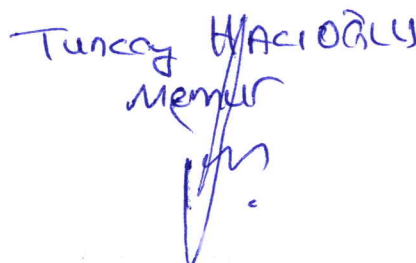 Tuncay HACIOĞLU
Memur